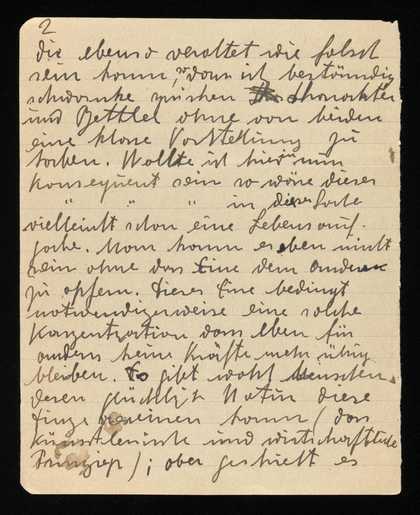 2
die ebenso veraltet wie falsch
sein kann, denn ich beständig
schwanke zwischen Charakter
und Zettel ohne von beiden
eine klare Vorstellung zu
haben. Wollte ich hierin nun
konsequent sein so wäre dieses
" " " in dieser Sache
vielleicht schon eine Lebensauf-
gabe. Man kann es eben nicht
sein ohne das Eine dem anderen
zu opfern. Dieses Eine bedingt
notwendigerweise eine solche
Konzentration dass eben für
anders keine Kräfte mehr übrig
bleiben. Es gibt wohl Menschen
deren glückliche Natur diese
Dinge vereinen kann (das
künstlerische und wirtschaftliche
Prinziep); aber gestielt es